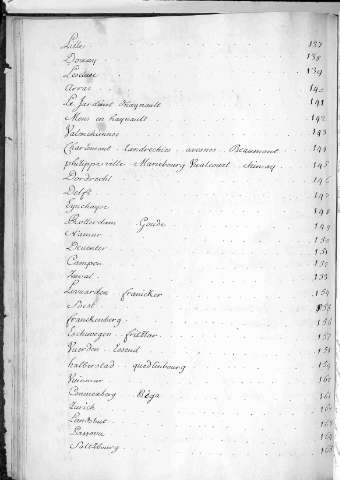 Lille 137
Douay 138
Lescluse 139
Arras 140
Le Jardin 141
Mons en haynault 142
Valenciennes 143
Charlemont Landrechies avesnes Beaumont 144
philippeville Mariebourg Chimay 145
Dordrecht 146
Delft 147
148
Rotterdam Goude 149
Namur 150
Deventer 151
Campen 152
153
Lewarden franicker 154
Soest 155
franckenberg 156
Eschwegen fritzlar 157
Vuerden Essend 158
halberstad quedlinbourg 159
160
Konninsberg Riga 161
Zurich 162
Landshut 163
Passau 164
Saltzbourg 165